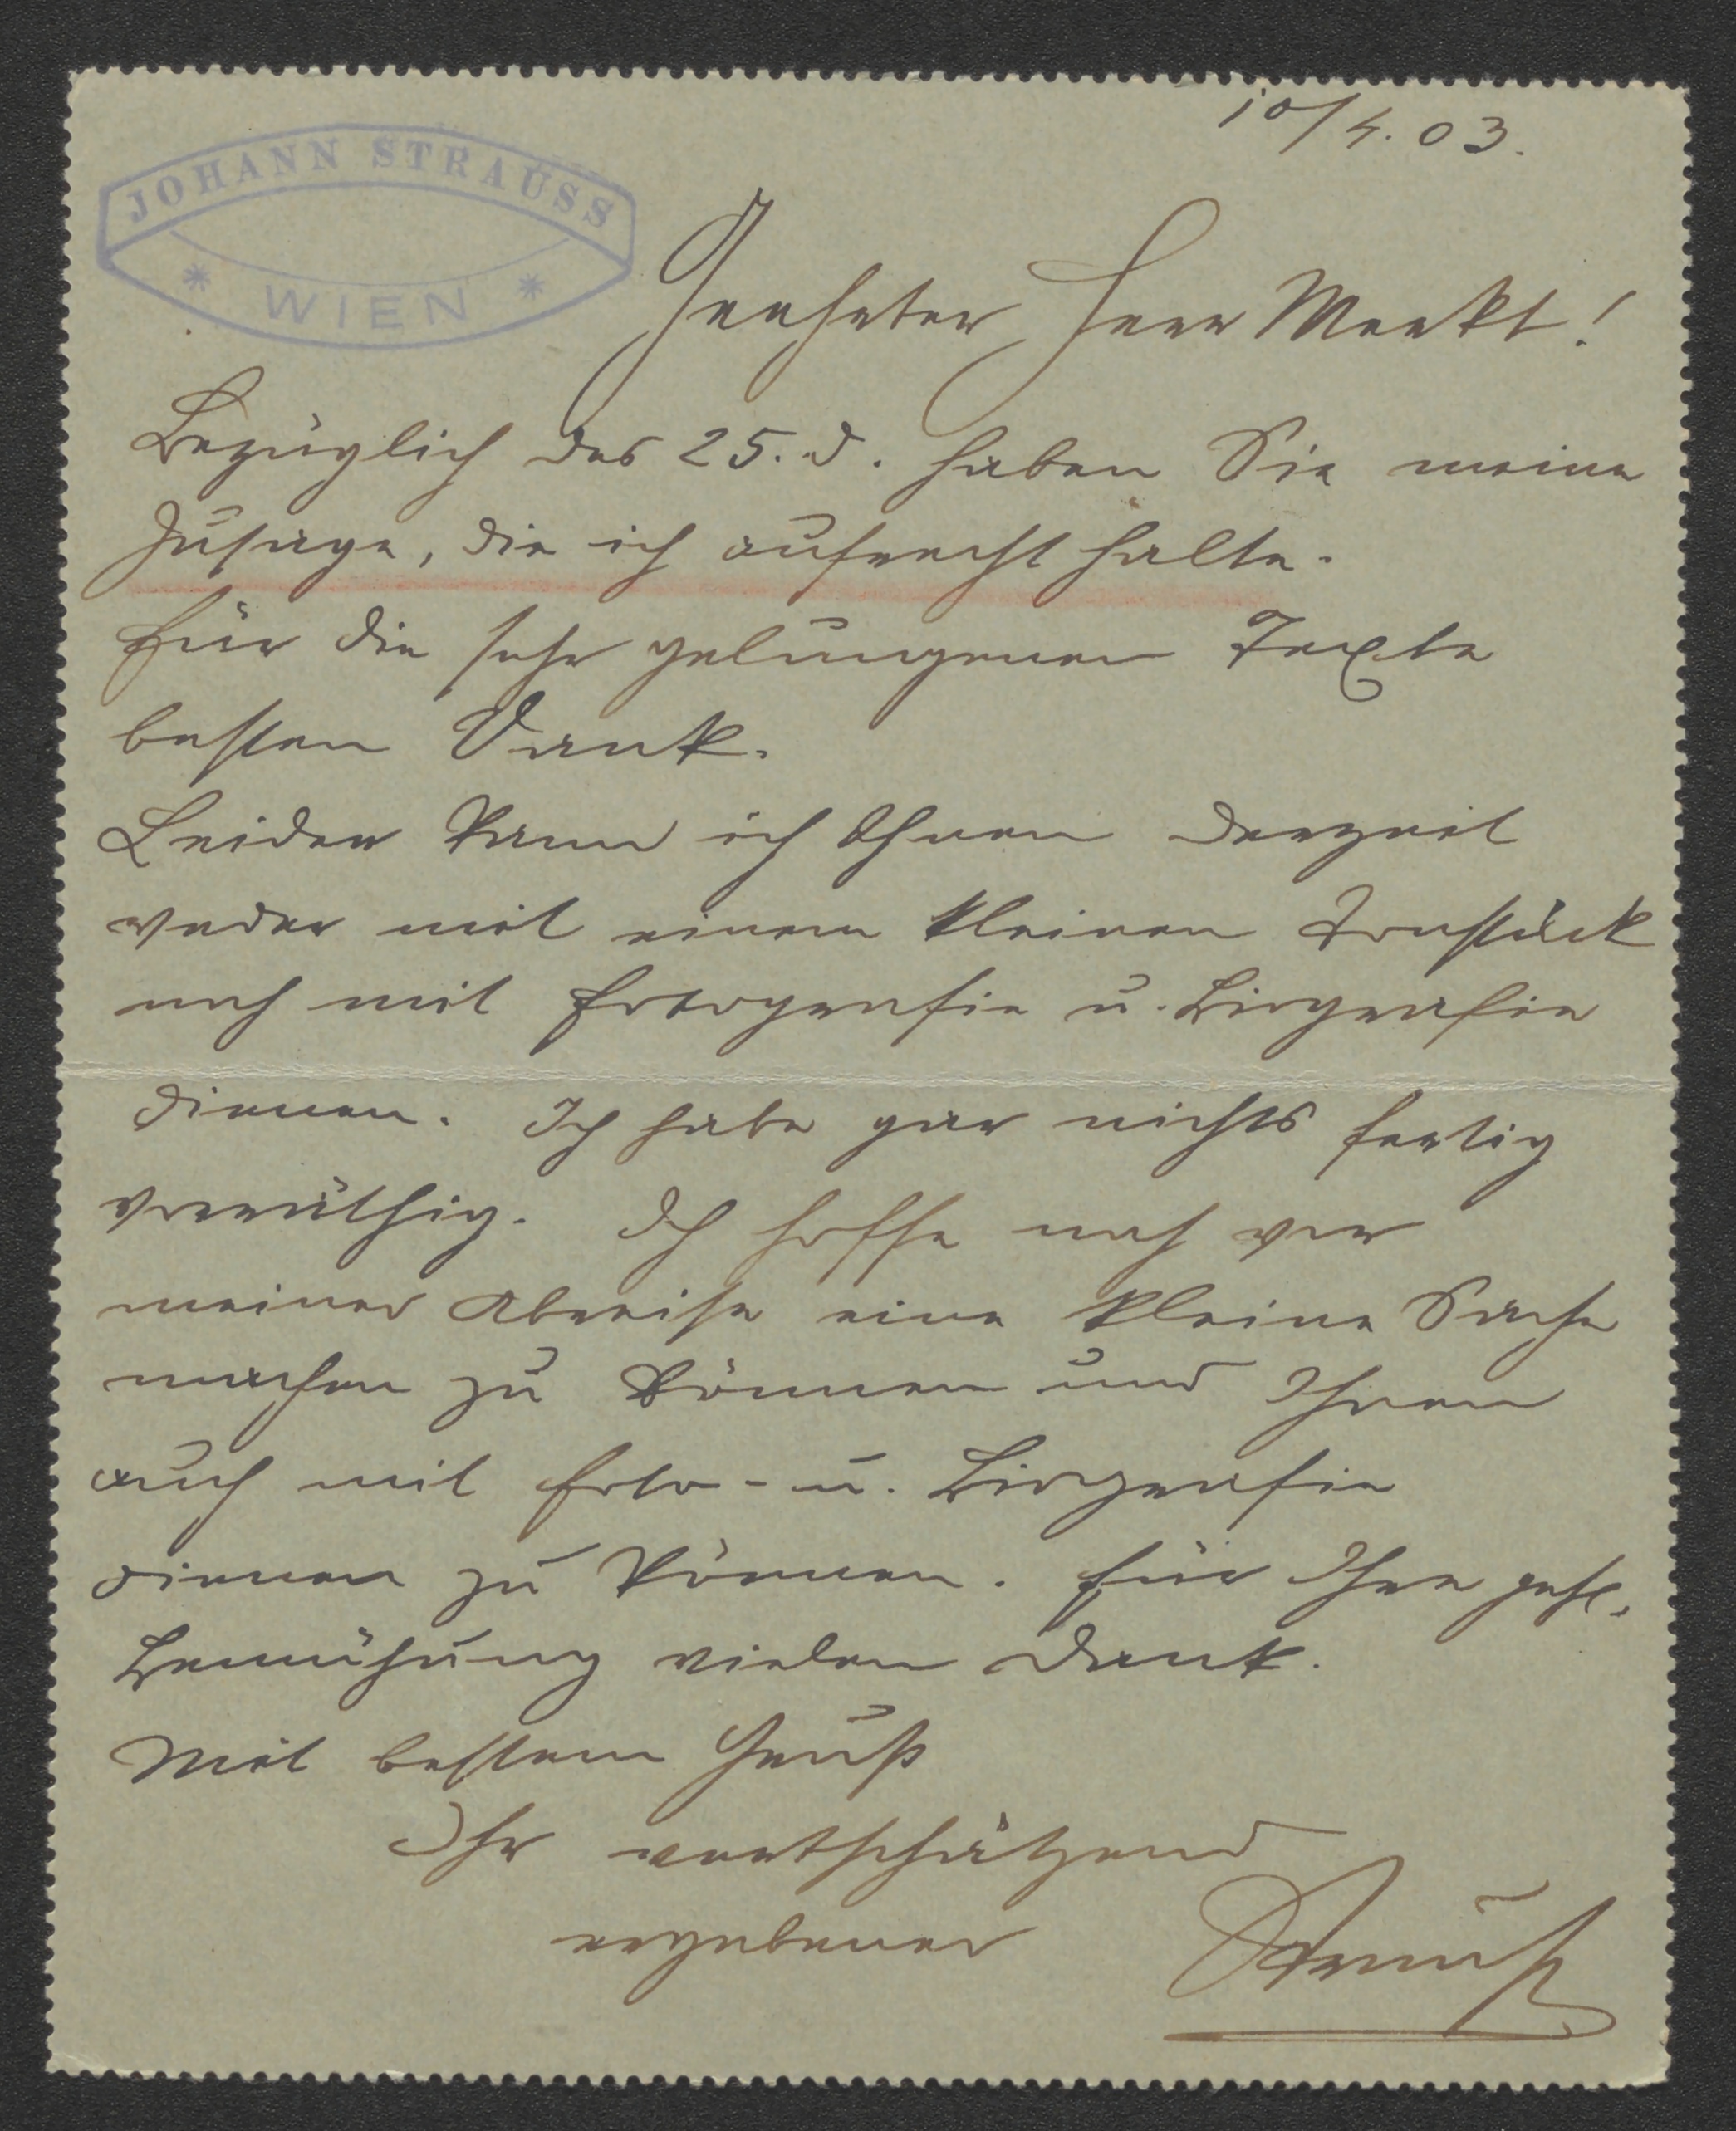 10/4. 03.
JOHANN STRAUSS
* WIEN *
Geehrter Herr Merkt!
Bezüglich des 25. d. haben Sie meine
Zusage, die ich aufrecht halte.
Für die sehr gelungenen Texte
besten Dank.
Leider kann ich Ihnen derzeit
weder mit einem kleinen Tonstück
noch mit Fotografie u. Biografie
dienen. Ich habe gar nichts fertig
vorräthig. Ich hoffe noch vor
meiner Abreise eine kleine Sache
machen zu können und Ihnen
auch mit Foto- u. Biografie
dienen zu können. Für Ihre gefl.
Bemühung vielen Dank.
Mit bestem Gruß
Ihr wertschätzend
ergebener Strauß